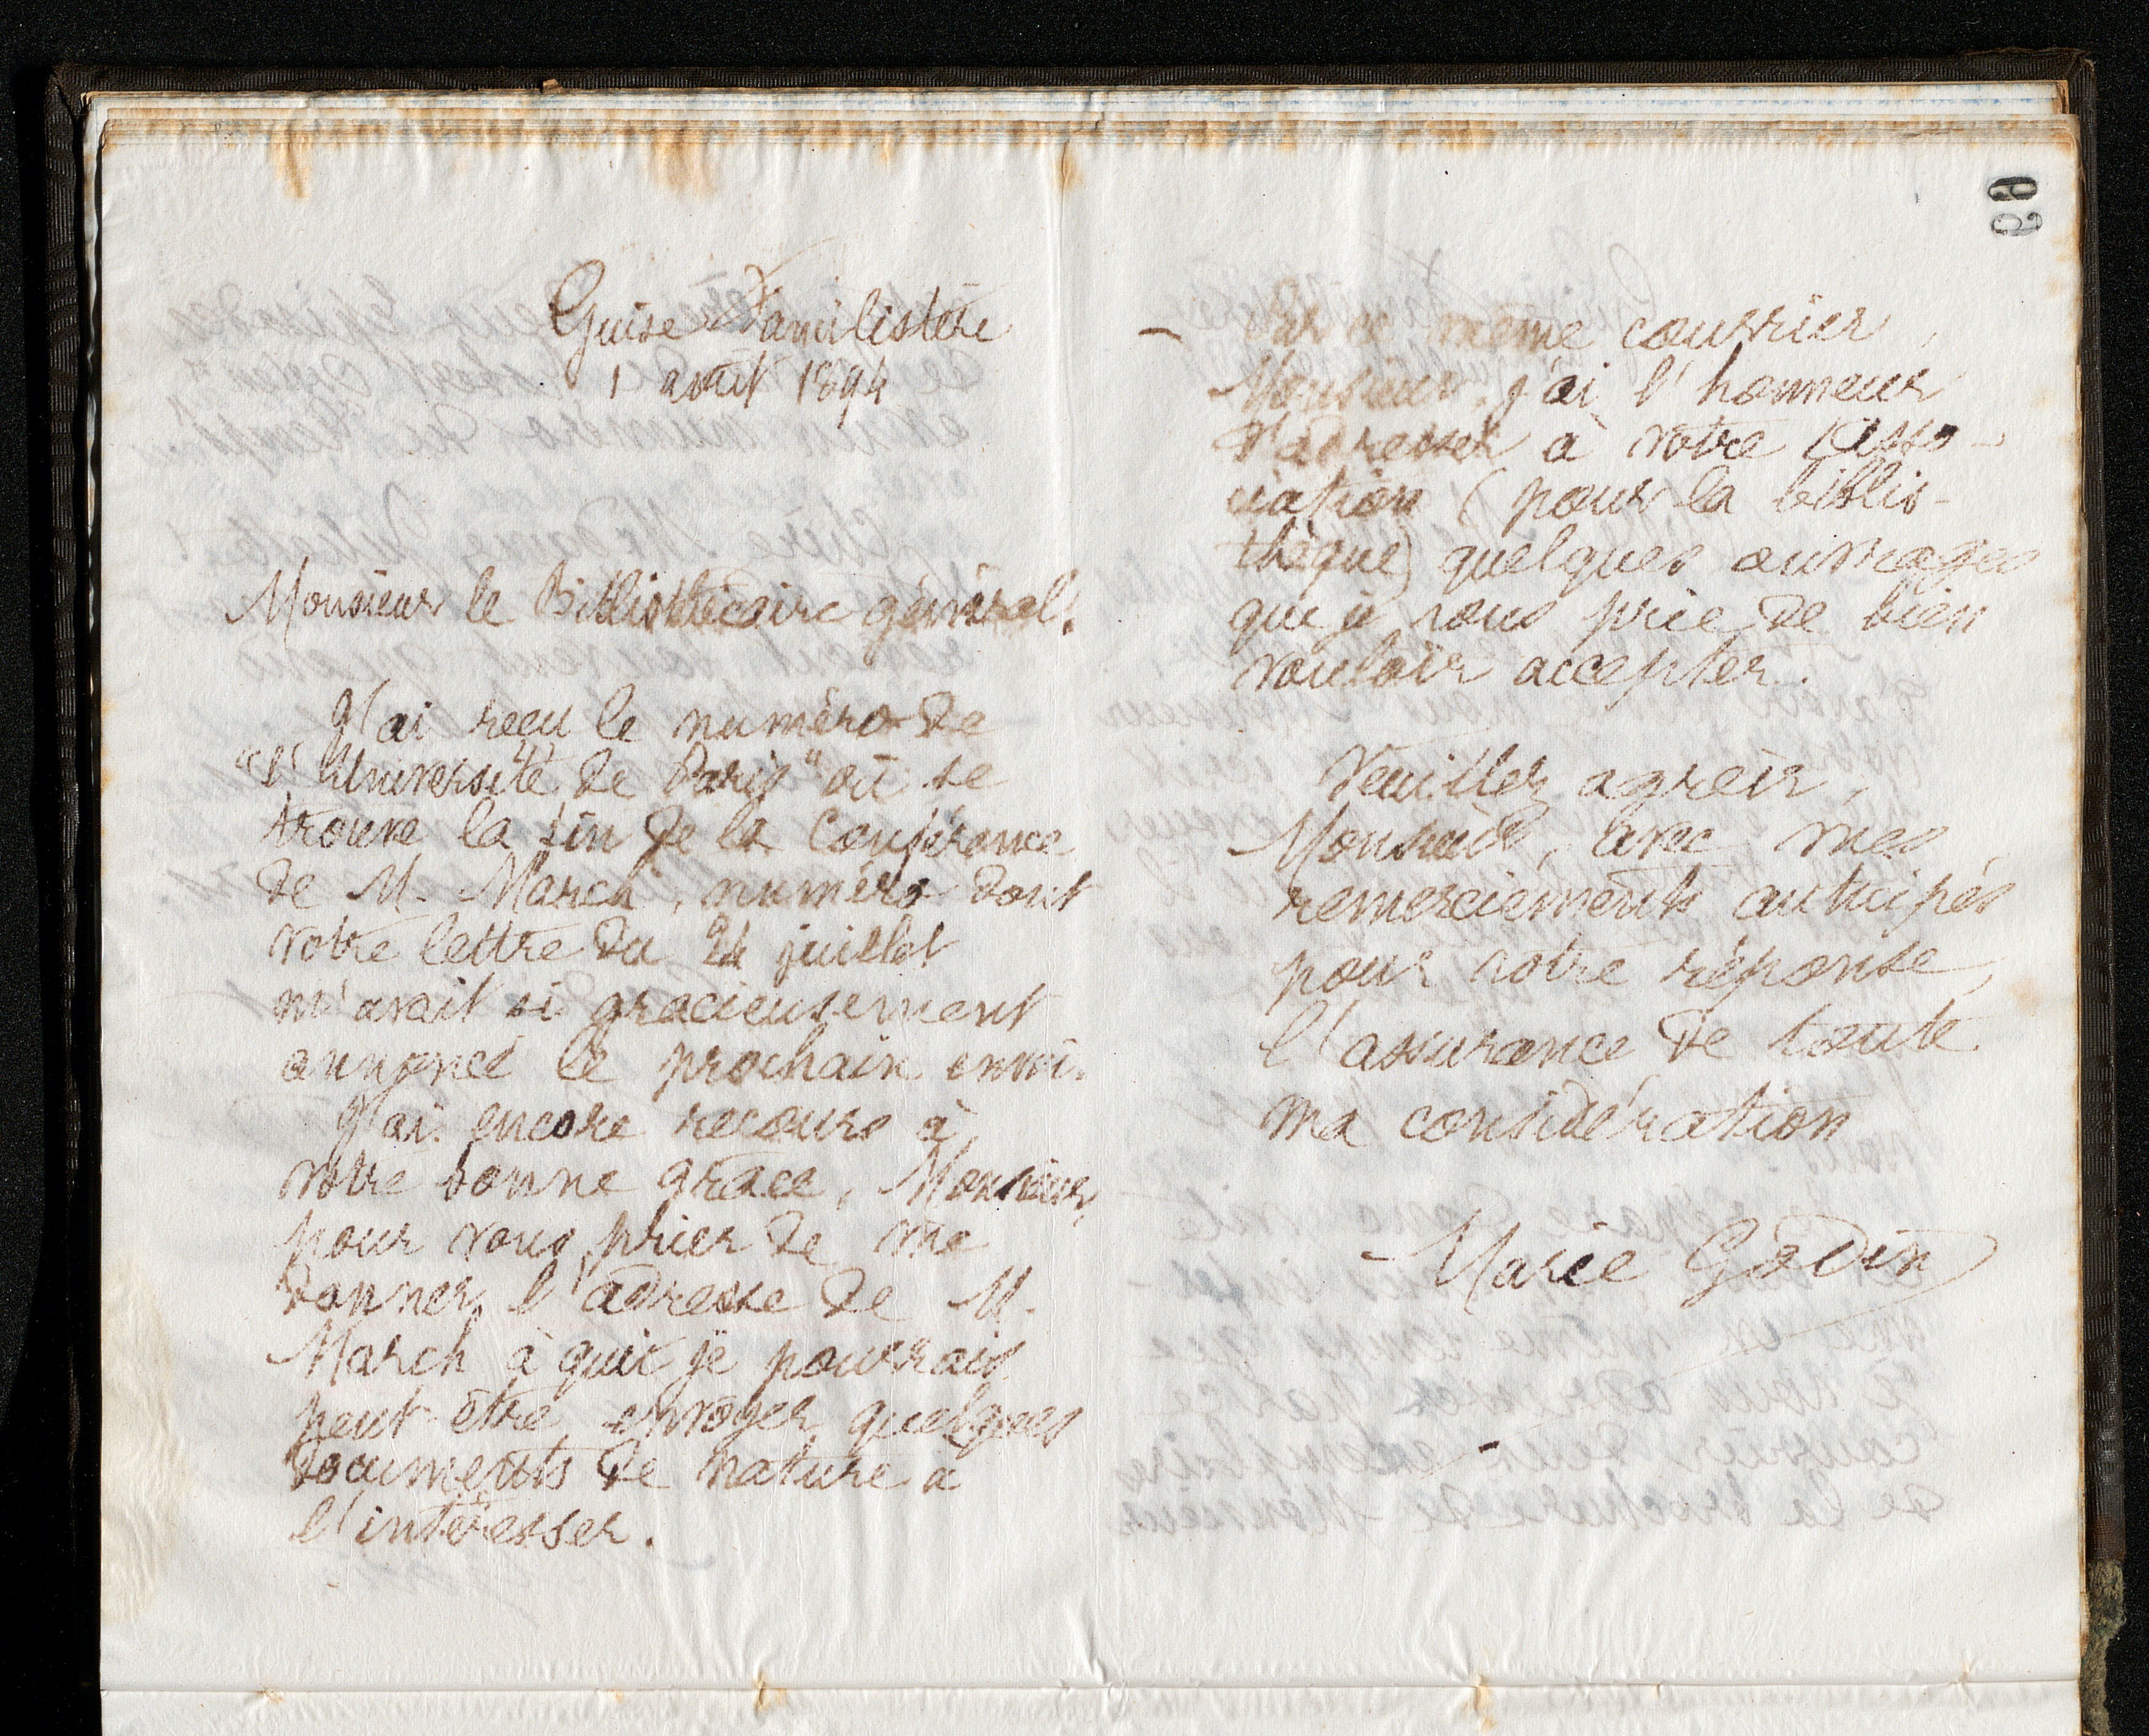 Guise Familistère
1 août 1894
Monsieur le Bibliothécaire général,
J'ai reçu le numéro de
"l'Université de Paris" où se
trouve la fin de la Conférence
de M. March, numéro dont
votre lettre du 24 juillet
m'avait si gracieusement
annoncé le prochain envoi.
J'ai encore recours à
votre bonne grâce, Monsieur,
pour vous prier de me
donner l'adresse de M.
March à qui je pourrais
peut-être envoyer quelques
documents de nature à
l'intéresser.
69
Par ce même courrier,
Monsieur, j'ai l'honneur
d'adresser à votre Asso-
ciation (pour la biblio-
thèque) quelques ouvrages
que je vous prie de bien
vouloir accepter.
Veuillez agréer,
Monsieur, avec mes
remerciements anticipés
pour votre réponse,
l'assurance de toute
ma considération
Marie Godin